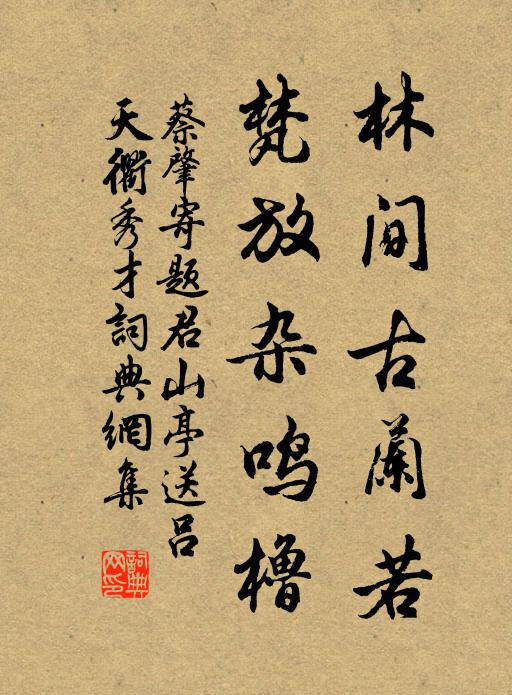 林间古蘭若
梵放杂鸣橹
蔡肇寄题君山亭送吕
天衢秀才詞典網集
詞典网印